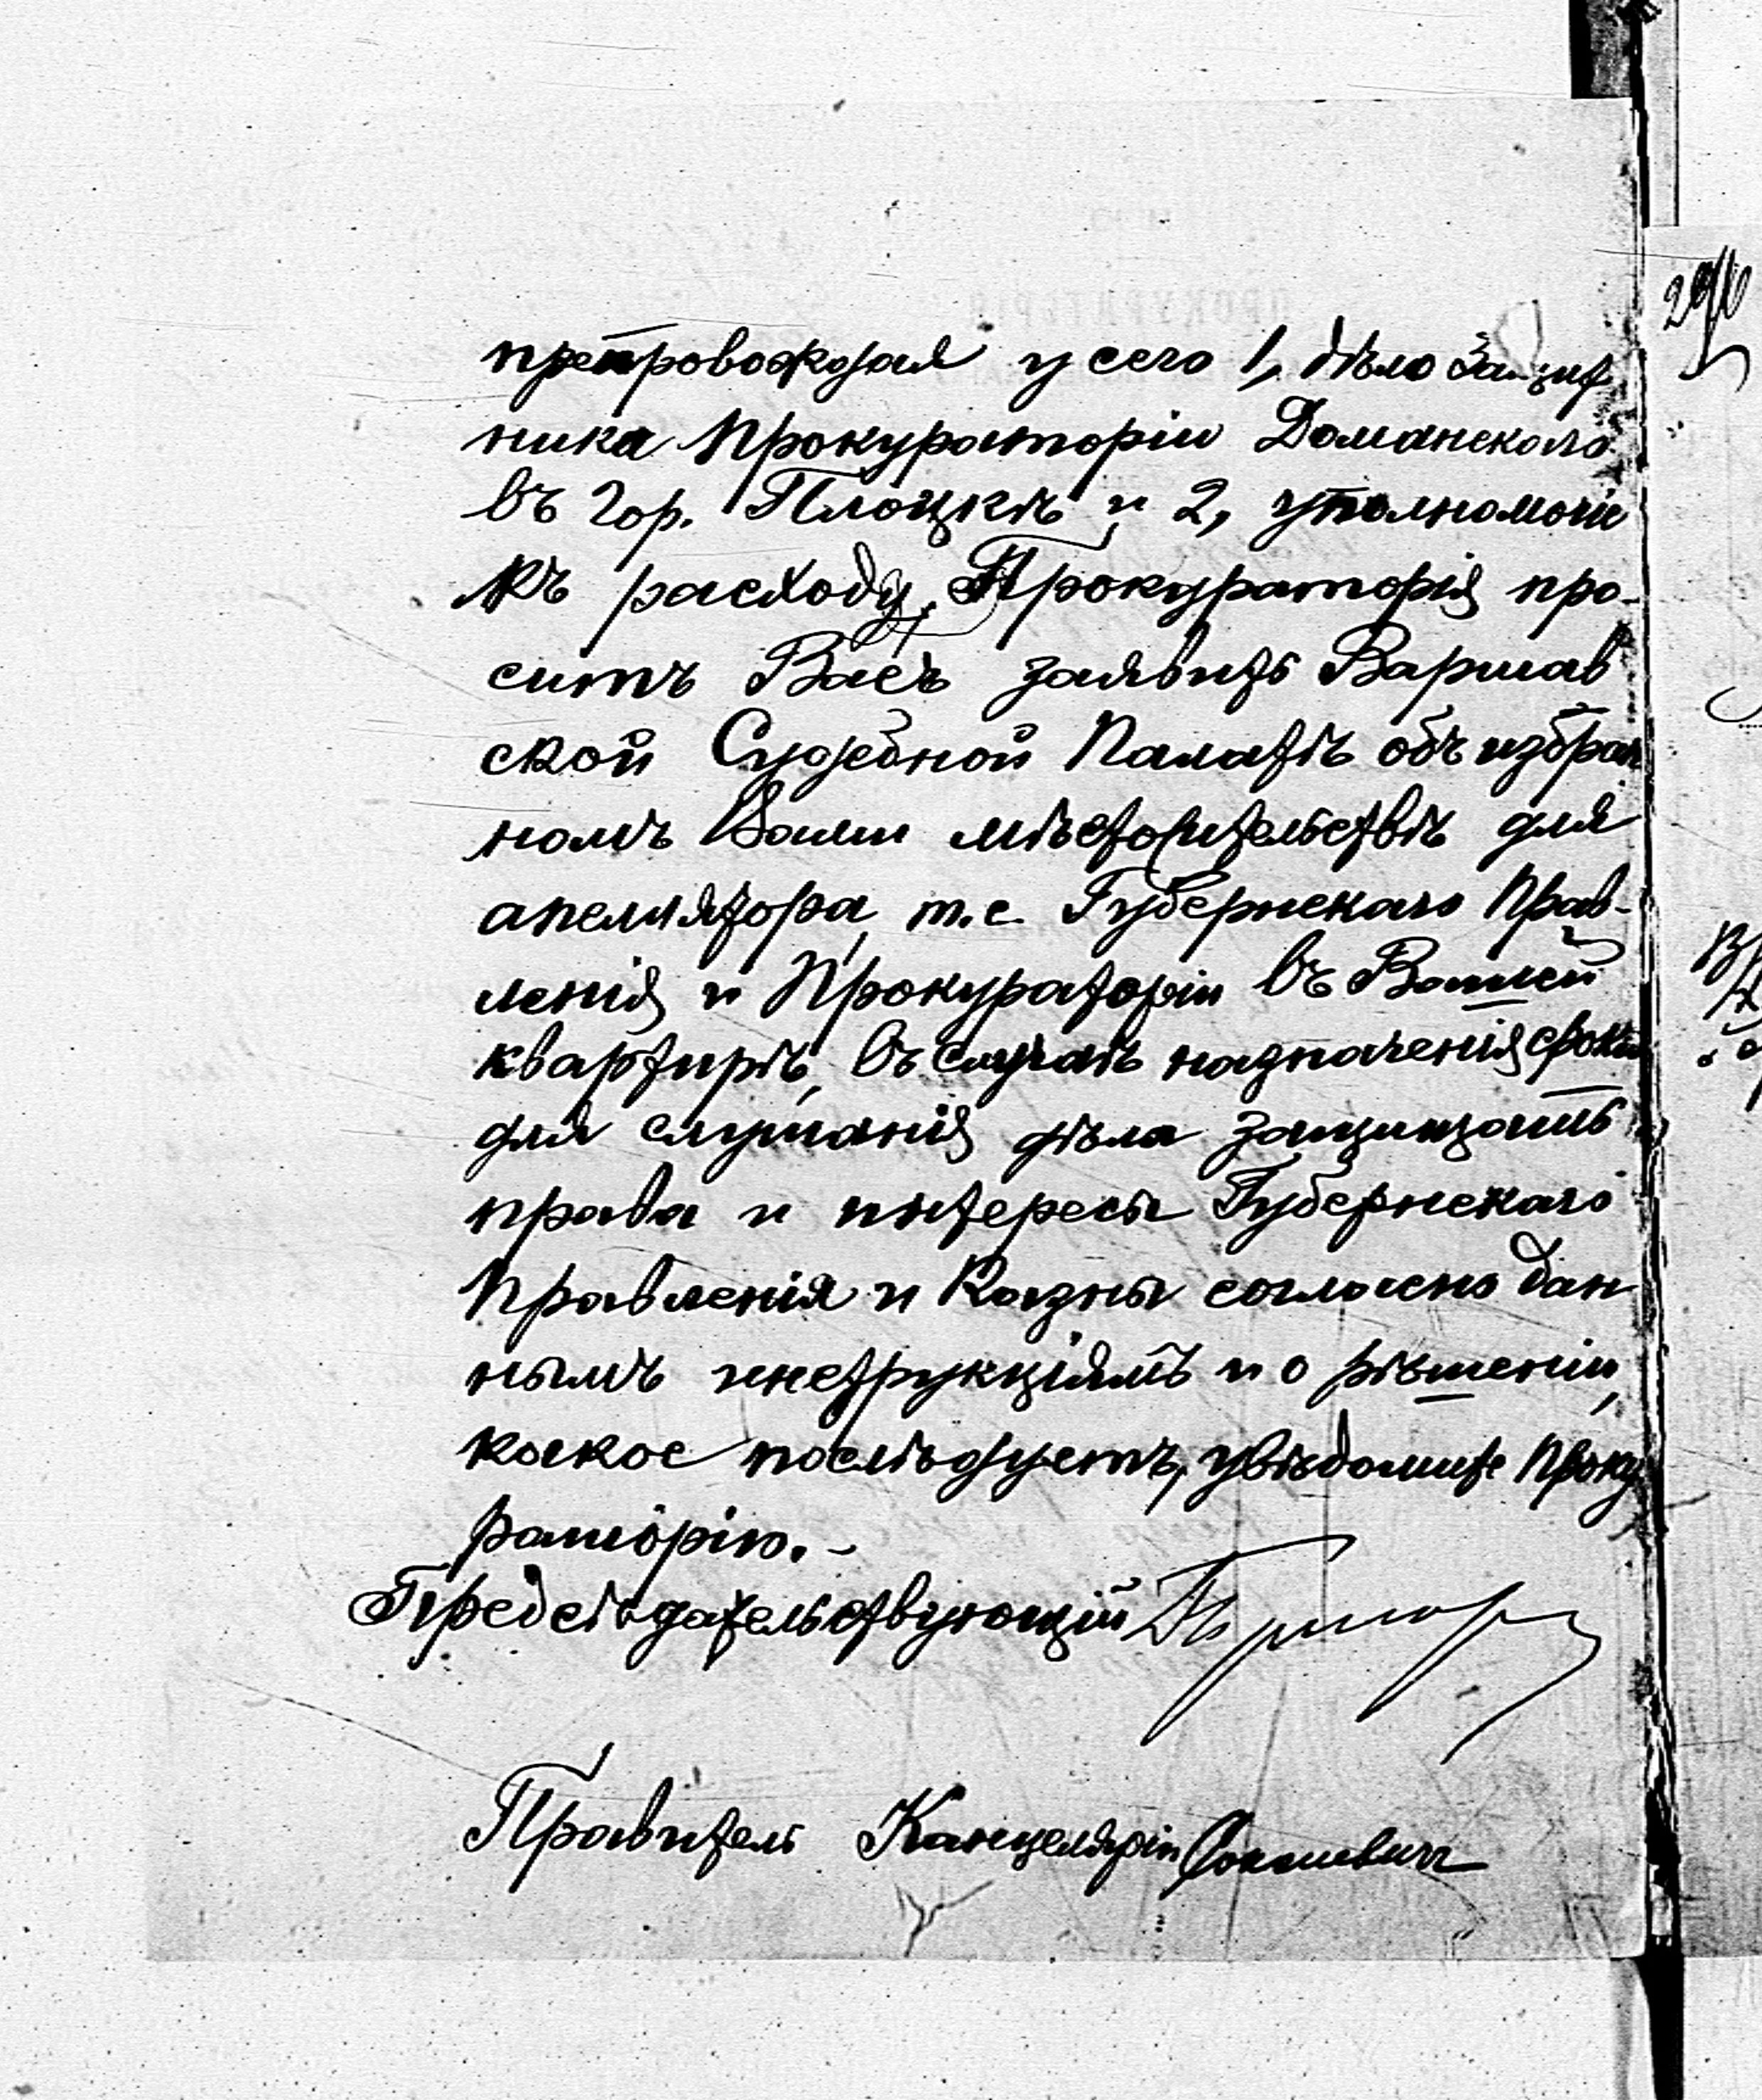 препровождая у сего 1, дѣло Защит
ника Прокураторіи Доманскаго
въ гор. Плоцкѣ и 2, уполномочіе
къ расходу, Прокураторія про-
ситъ Васъ заявить Варшав
ской Судебной Палатѣ объ избран
номъ Вами мѣстожительствѣ для
апеллятора, т.е. Губернскаго Прав-
ленія и Прокураторіи въ Вашей
квартирѣ, въ случаѣ назначенія срока
для слушанія дѣла защищать
права и интересы Губернскаго
Правленія и Казны согласно дан
нымъ инструкціямъ и о рѣшеніи,
каковое послѣдуетъ, увѣдомите Проку
раторію.-
Предсѣдательствующій
Правитель Канцеляріи